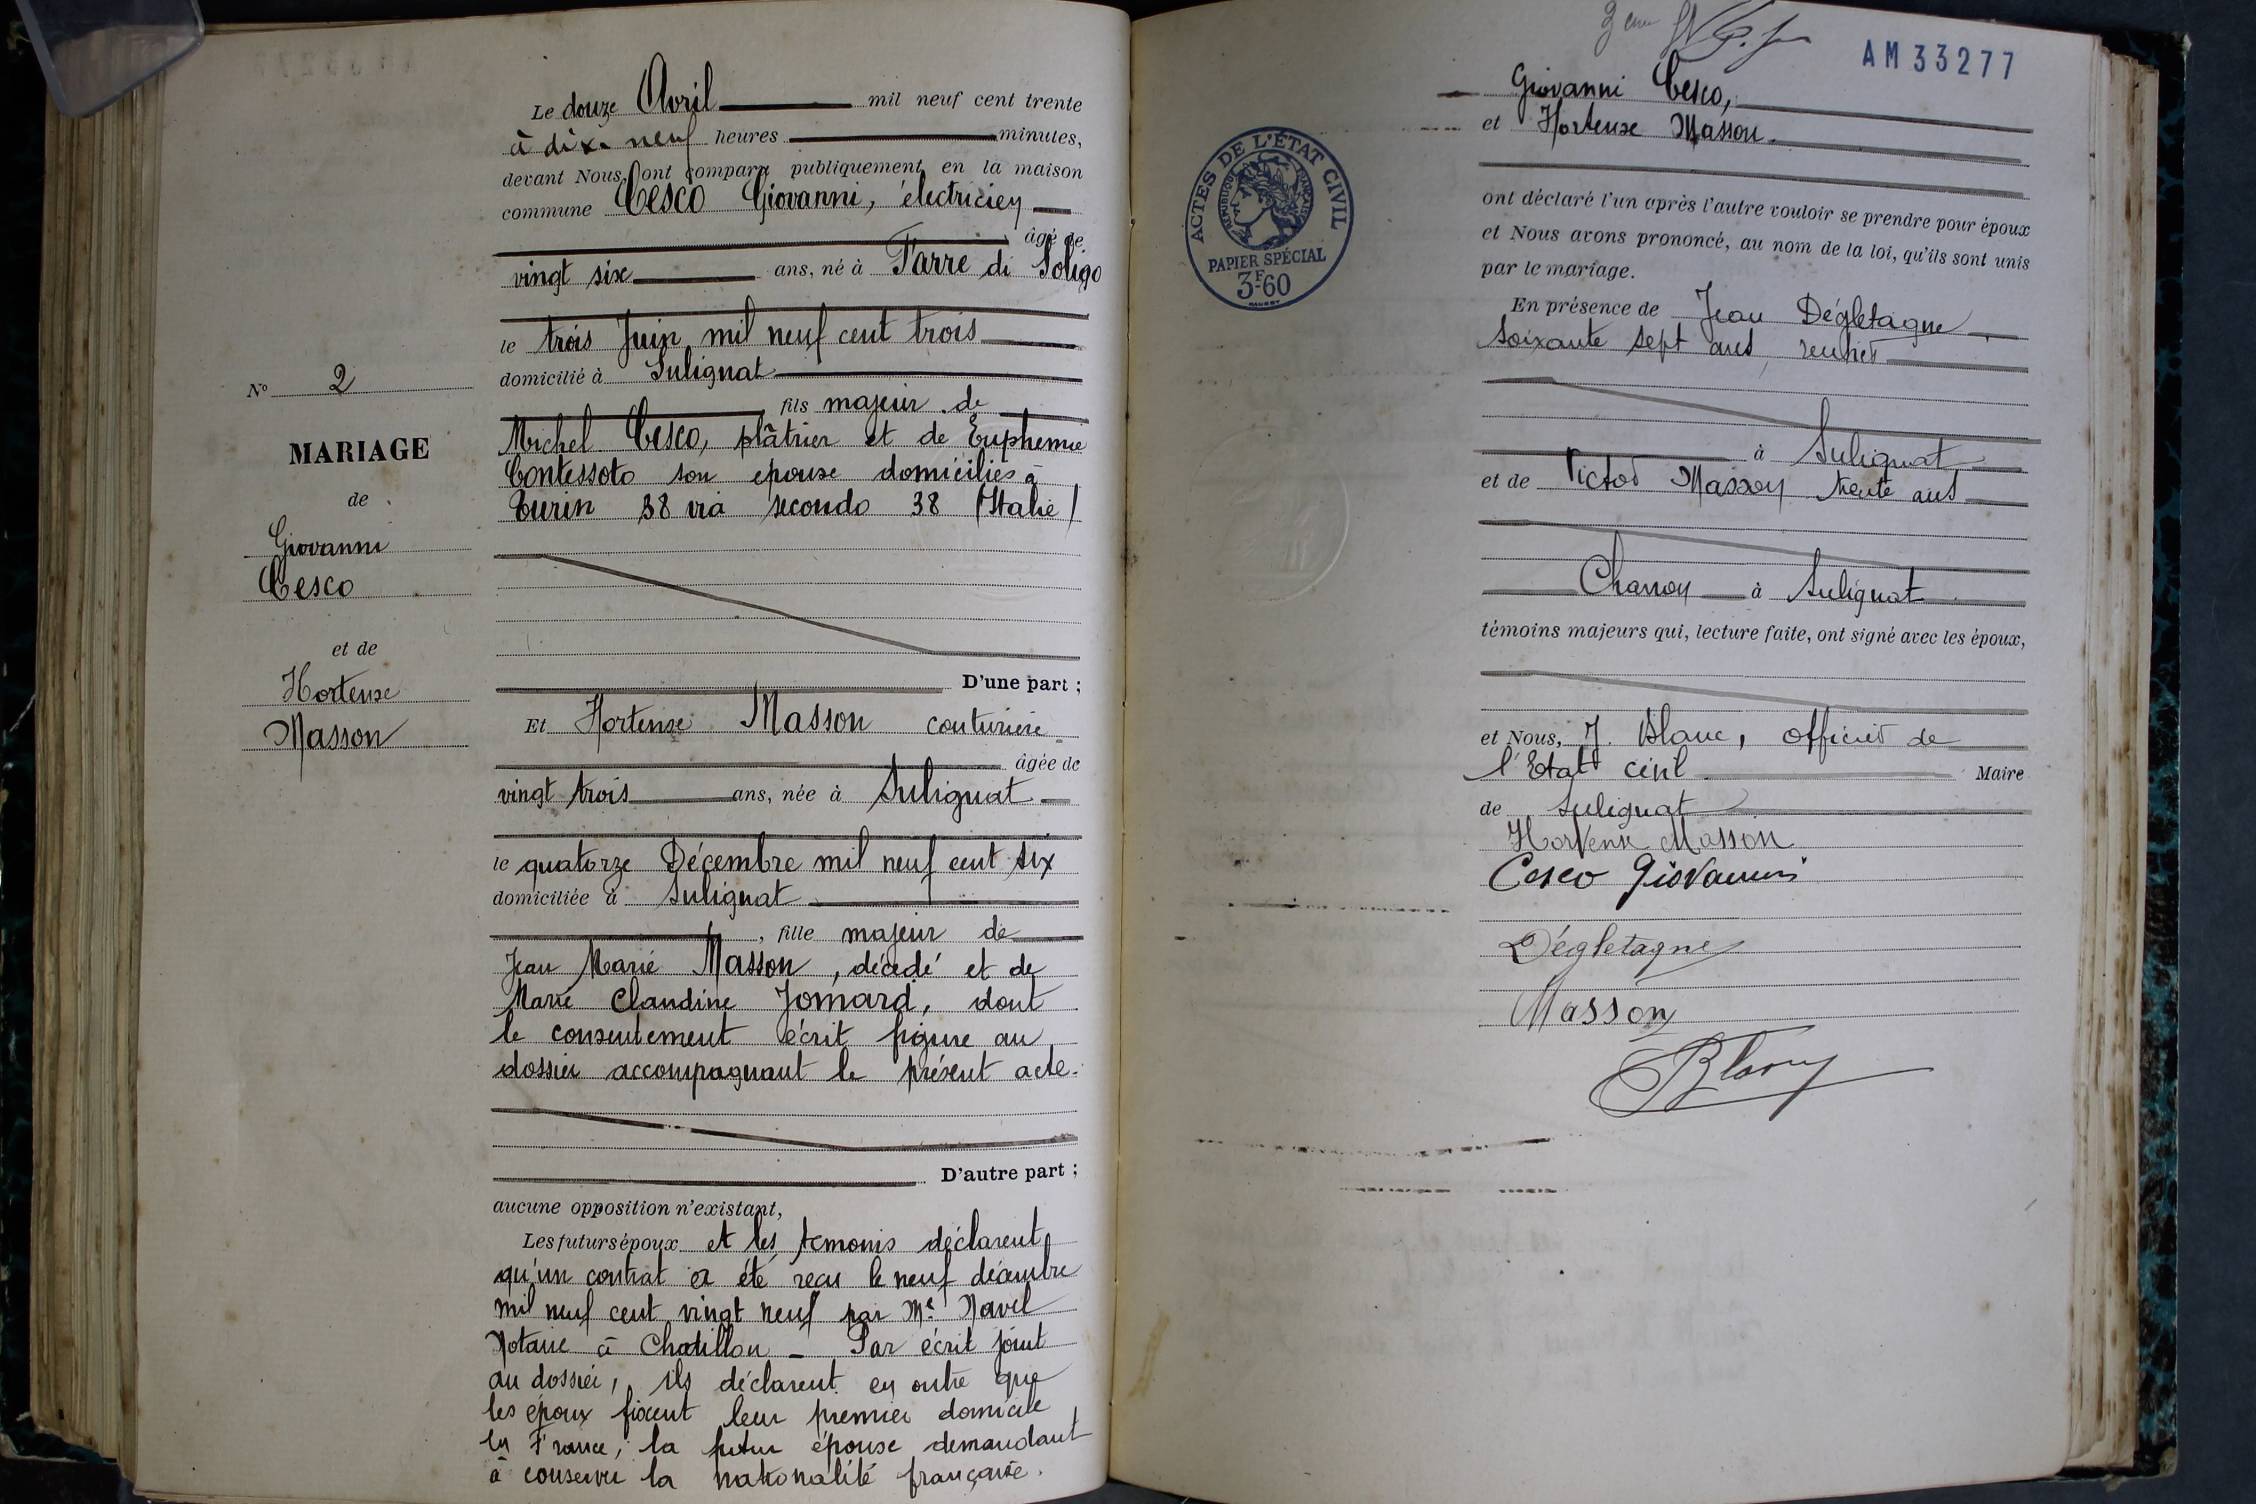 N° 2
MARIAGE
de
Giovanni
Cesco
et de
Hortense
Masson
Le douze Avril mil neuf cent trente
à dix-neuf heures minutes,
devant Nous, ont comparu publiquement en la maison
commune Cesco Giovanni, électricien
âgé de
vingt six ans, né à Farre di Soligo
le trois Juin mil neuf cent trois
domicilié à Sulignat
fils majeur de
Michel Cesco, plâtrier et de Euphemie
Contessoto son epouse domiciliés à
Turin 38 via secondo 38 (Italie)
D'une part ;
Et Hortense Masson couturière
âgée de
vingt trois ans, née à Sulignat
le quatorze Décembre mil neuf cent six
domiciliée à Sulignat
, fille majeur de
Jean Marie Masson, décédé et de
Marie Claudine Jomard, dont
le consentement écrit figure au
dossier accompagnant le présent acte.
D'autre part ;
aucune opposition n'existant,
Les futurs époux et les temoins déclarent
qu'un contrat a été reçu le neuf décembre
mil neuf cent vingt neuf par Me Navel
Notaire à Chatillon - Par écrit joint
au dossier, ils déclarent en outre que
les époux fixent leur premier domicile
en France, la futur épouse demandant
à conserver la nationalité française.
AM 33277
ACTES DE L'ÉTAT CIVIL
RÉPUBLIQUE FRANÇAISE
PAPIER SPÉCIAL
3F60
Giovanni Cesco,
et Hortense Masson
ont déclaré l'un après l'autre vouloir se prendre pour époux
et Nous avons prononcé, au nom de la loi, qu'ils sont unis
par le mariage.
En présence de Jean Dégletagne
soixante sept ans, rentier
à Sulignat
et de Victor Masson trente ans
Charron à Sulignat
témoins majeurs qui, lecture faite, ont signé avec les époux,
et Nous, J. Blanc, officier de
l'Etat civil Maire
de Sulignat
Hortense Masson
Cesco Giovanni
Dégletagne
Masson
Blanc